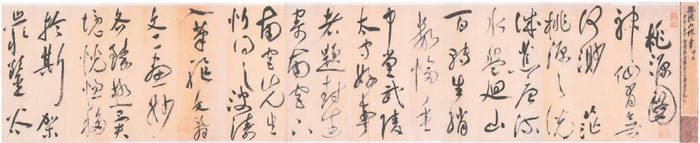 桃源圖
神仙有無
何渺茫
桃源之説
誠荒唐流
水盤迴山
百轉生綃
數幅垂
中堂武陵
太守好事
者題封遠
寄南宮下
南宮先生
忻得之波濤
入筆驅文辭
文工畫妙
各臻極異
境恍惚移
於斯架
巖鑿谷